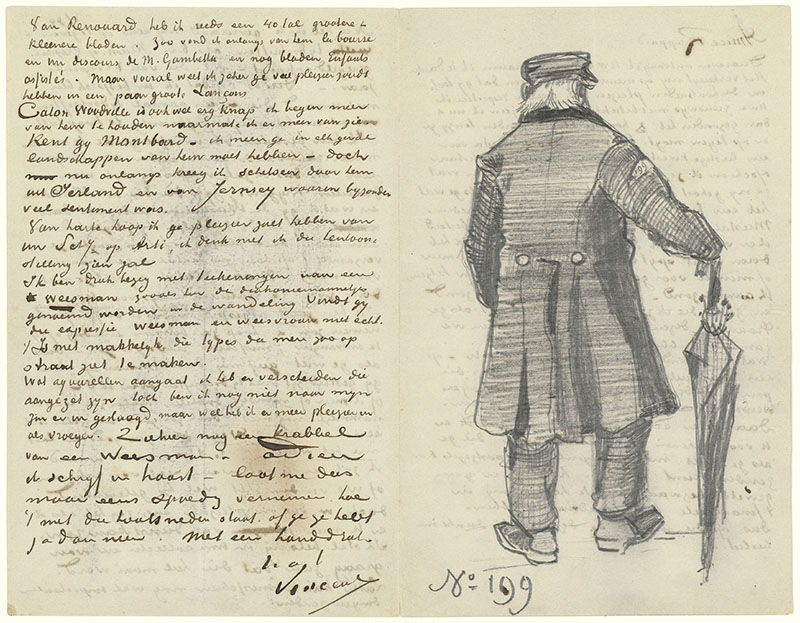 Van Renouard heb ik reeds een 40 tal grootere &
kleinere bladen. Zoo vond ik onlangs van hem la bourse
en un discours de M. Gambetta en nog bladen Enfants
assistés. Maar vooral weet ik zeker ge veel pleizier zoudt
hebben in een paar groote Lançons
Caton Woodville is ook wel erg knap ik begin meer
van hem te houden naarmate ik er meer van zie
Kent gy Montbard – ik meen ge in elk geval
landschappen van hem moet hebben – doch
nu onlangs kreeg ik schetsen door hem
uit Ierland en van Jersey waarin byzonder
veel sentiment was.
Van harte hoop ik ge pleizier zult hebben van
uw Schij op Arti ik denk niet ik die tentoon-
stelling zien zal
Ik ben druk bezig met teekeningen van een
weesman zooals hier de diakoniemannetjes
genoemd worden in de wandeling Vindt gy
die expressie weesman en weesvrouw niet echt.
't Is niet makkelyk die types die men zoo op
straat ziet te maken.
Wat aquarellen aangaat ik heb er verscheiden die
aangezet zyn toch ben ik nog niet naar myn
zin er in geslaagd maar wel heb ik er meer pleizier in
als vroeger. Ziehier nog een krabbel
van een weesman – adieu
ik schryf in haast – laat me dus
maar eens spoedig vernemen hoe
't met die houtsneden staat, of ge ze hebt
ja dan neen. Met een handdruk
t. à t.
Vincent
No 199